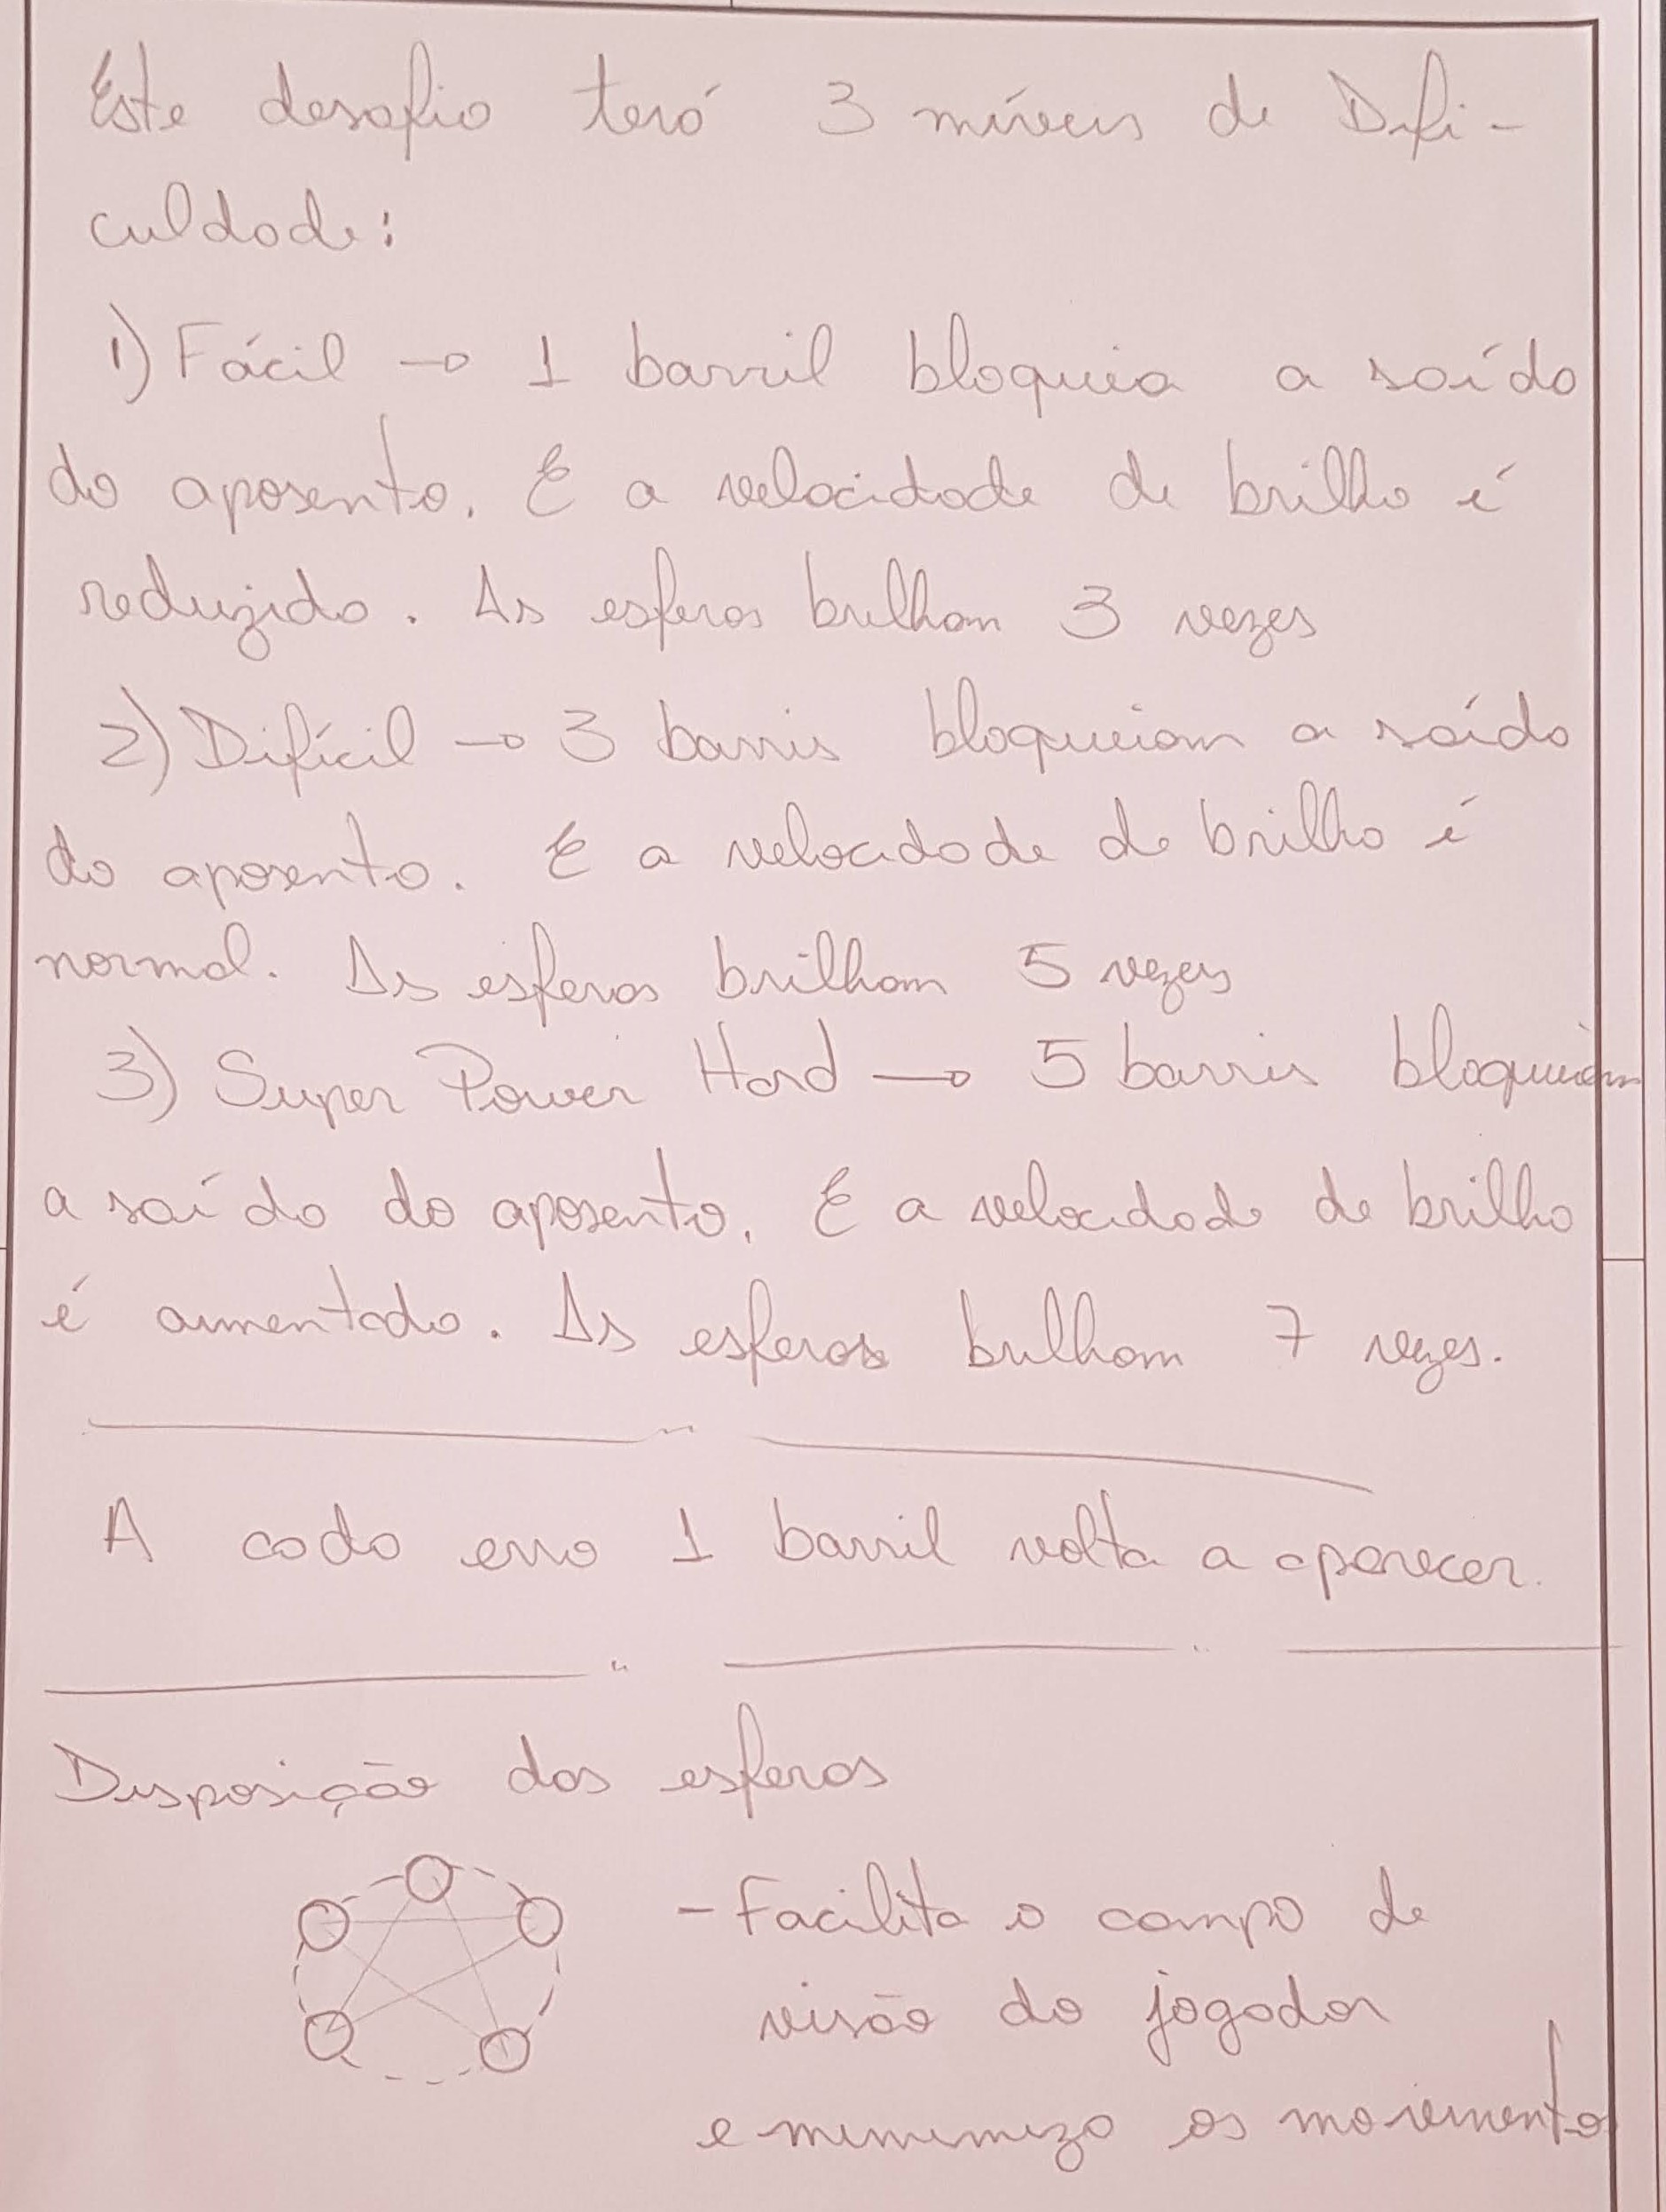 Este desafio terá 3 níveis de Difi-
culdade:
1) Fácil → 1 barril bloqueia a saída
do aposento. E a velocidade de brilho é
reduzida. As esferas brilham 3 vezes
2) Difícil → 3 barris bloqueiam a saída
do aposento. E a velocidade de brilho é
normal. As esferas brilham 5 vezes
3) Super Power Hard → 5 barris bloqueiam
a saída do aposento. E a velocidade de brilho
é aumentada. As esferas brilham 7 vezes.
A cada erro 1 barril volta a aparecer.
Disposição das esferas
- Facilita o campo de
visão do jogador
e minimiza os movimento